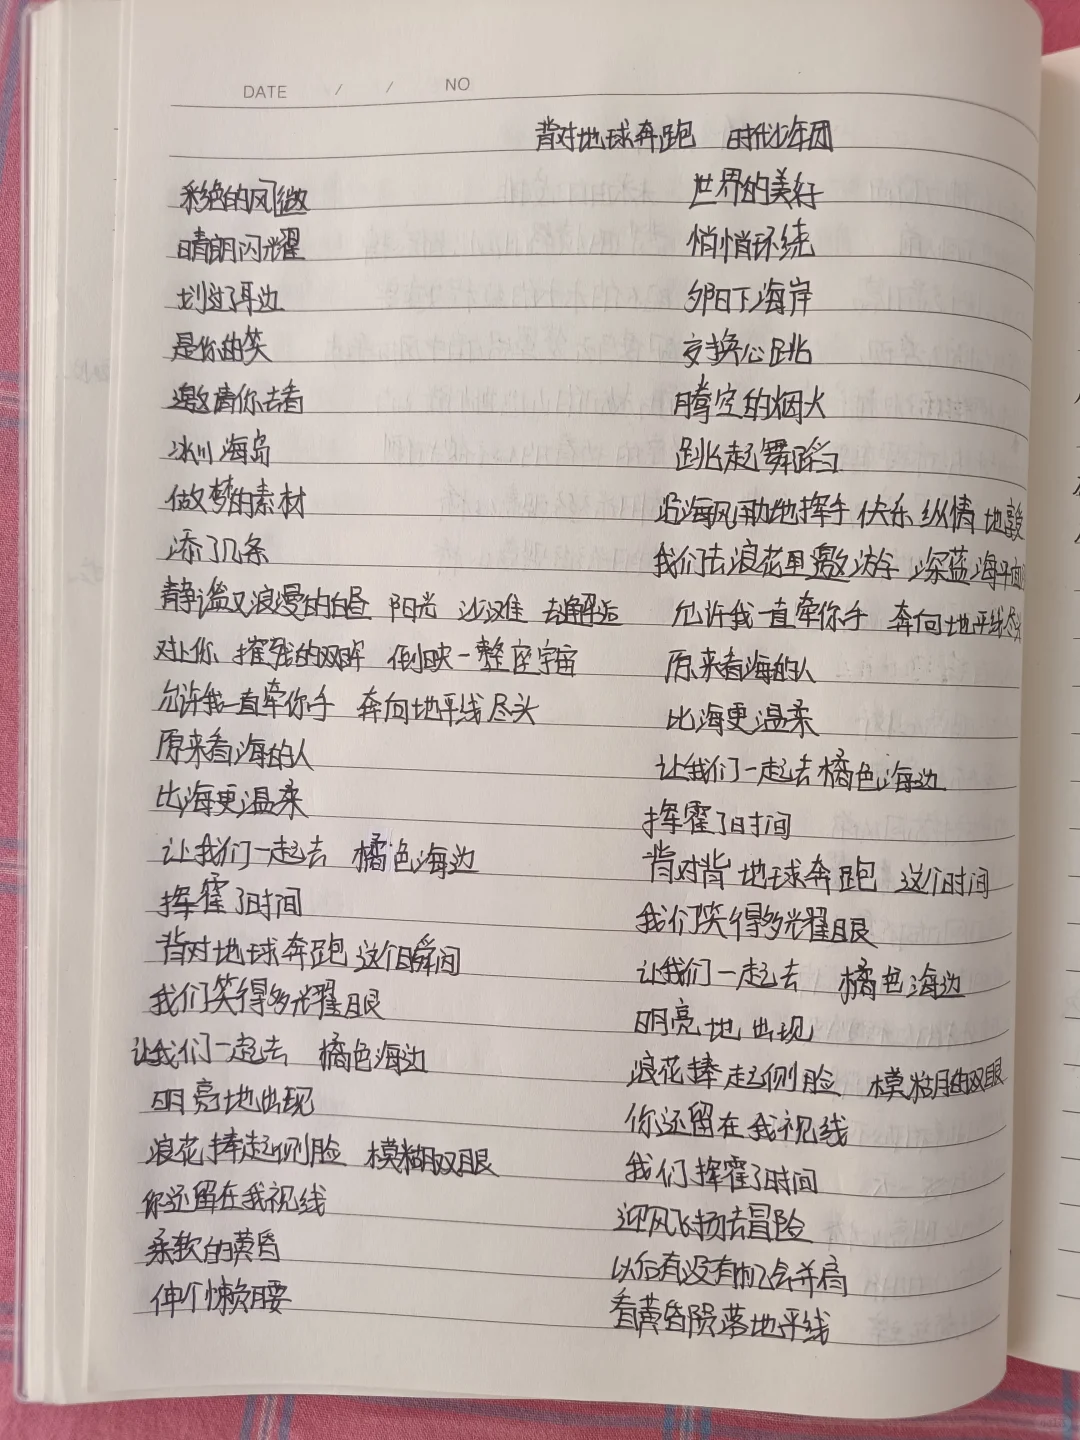 DATE / / NO
背对地球奔跑 时代少年团
彩绝的风微
晴朗闪耀
划过了耳边
是你的笑
邀请你去看
冰川海岛
做梦的素材
添了几条
静谧又浪漫的白昼 阳光 沙滩 去邂逅
对上你 摧残的双眸 倒映一整座宇宙
允许我一直牵你手 奔向地平线尽头
原来看海的人
比海更温柔
让我们一起去 橘色海边
挥霍了时间
背对地球奔跑 这个瞬间
我们笑得多光耀眼
让我们一起去 橘色海边
明亮地出现
浪花捧起侧脸 模糊双眼
你还留在我视线
柔软的黄昏
伸个懒腰
世界的美好
悄悄环绕
夕阳下海岸
交换心跳
腾空的烟火
跳起舞蹈
沿海风 挥手 快乐 纵情地敲
我们去浪花里遨游 深蓝海平面
允许我一直牵你手 奔向地平线尽头
原来看海的人
比海更温柔
让我们一起去橘色海边
挥霍了时间
背对背 地球奔跑 这个时间
我们笑得多光耀眼
让我们一起去 橘色海边
明亮地出现
浪花捧起侧脸 模糊的双眼
你还留在我视线
我们挥霍了时间
迎风飞扬去冒险
以后有没有机会并肩
看黄昏陨落地平线